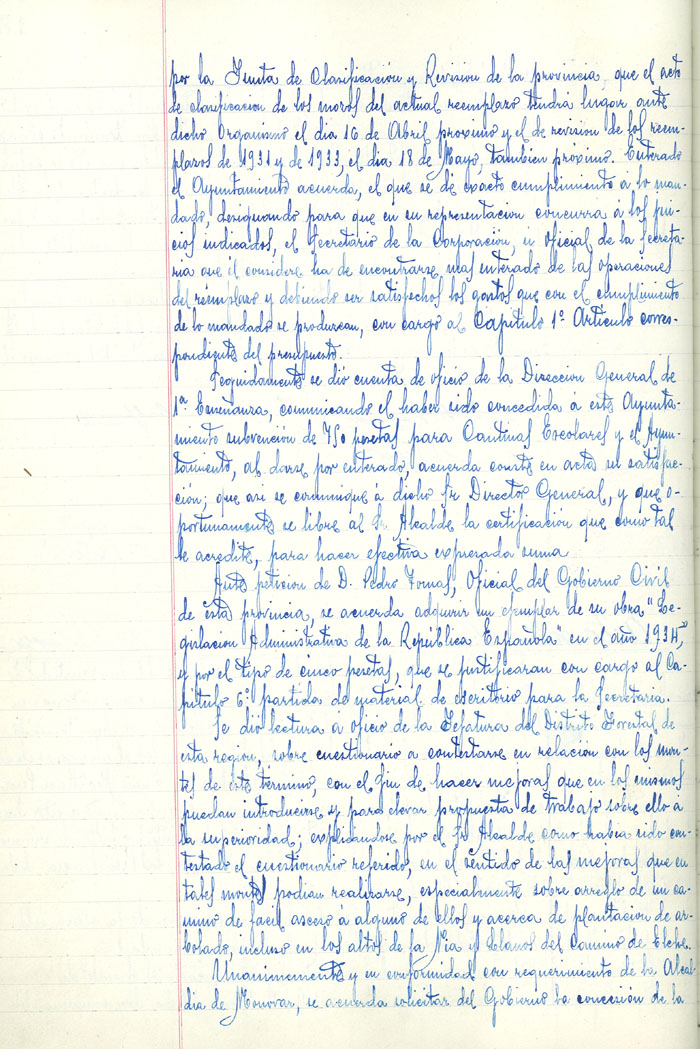 por la Junta de Clasificación y Revision de la provincia, que el acto
de clasificacion de los mozos del actual reemplazo tendrá lugar ante
dicho Organismo el dia 16 de Abril proximo y el de revision de los reem-
plazos de 1931 y de 1933, el dia 18 de Mayo, tambien proximo. Enterado
el Ayuntamiento acuerda, el que se dé exacto cumplimiento á lo man-
dado, designando para que en su representacion concurra á los jui-
cios indicados, el Secretario de la Corporación, ú oficial de la Secreta-
ria que él considere ha de encontrarse mas enterado de las operaciones
del reemplazo y debiendo ser satisfechos los gastos que con el cumplimiento
de lo mandado se produzcan, con cargo al Capitulo 1º Articulo corres-
pondiente del presupuesto.
Seguidamente se dió cuenta de oficio de la Direccion General de
1ª Enseñanza, comunicando el haber sido concedida á este Ayunta-
miento subvención de 750 pesetas para Cantinas Escolares y el Ayun-
tamiento, al darse por enterado, acuerda conste en acta su satisfac-
ción; que asi se comunique á dicho Sr Director General, y que o-
portunamente se libre al Sr Alcalde la certificación que como tal
le acredite, para hacer efectiva expresada suma
Ante peticion de D. Pedro Tomas, Oficial del Gobierno Civil
de esta provincia, se acuerda adquirir un ejemplar de su obra "Le-
gislacion Administrativa de la República Española" en el año 1934,"
y por el tipo de cinco pesetas, que se justificaran con cargo al Ca-
pitulo 6º partida de material de escritorio para la Secretaria.
Se dió lectura á oficio de la Jefatura del Distrito Forestal de
esta region, sobre cuestionario a contestarse en relación con los mon-
tes de este termino, con el fin de hacer mejoras que en los mismos
puedan introducirse y para elevar propuesta de trabajo sobre ello á
la superioridad; explicándose por el Sr Alcalde como habia sido con-
testado el cuestionario referido, en el sentido de las mejoras que en
tales montes podian realizarse, especialmente sobre arreglo de un ca-
mino de facil acceso á alguno de ellos y acerca de plantacion de ar-
bolado, incluso en los altos de la Via y Llanos del Camino de Elche.
Unanimemente y en conformidad con requerimiento de la Alcal-
dia de Monovar, se acuerda solicitar del Gobierno la concesión de la